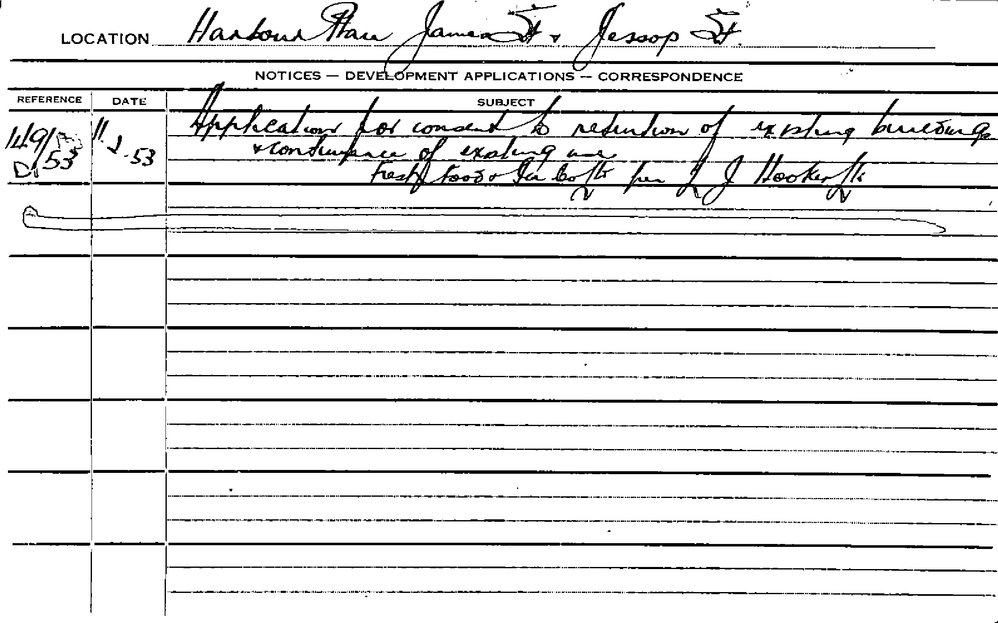 LOCATION Harbour Place James St & Jessop St.
NOTICES — DEVELOPMENT APPLICATIONS — CORRESPONDENCE
REFERENCE DATE SUBJECT
Application for consent to retention of existing buildings
149/53 11.2.53
& continuance of existing use
D.53
Fresh Food & Ice Co Ltd per L J Hooker Ltd